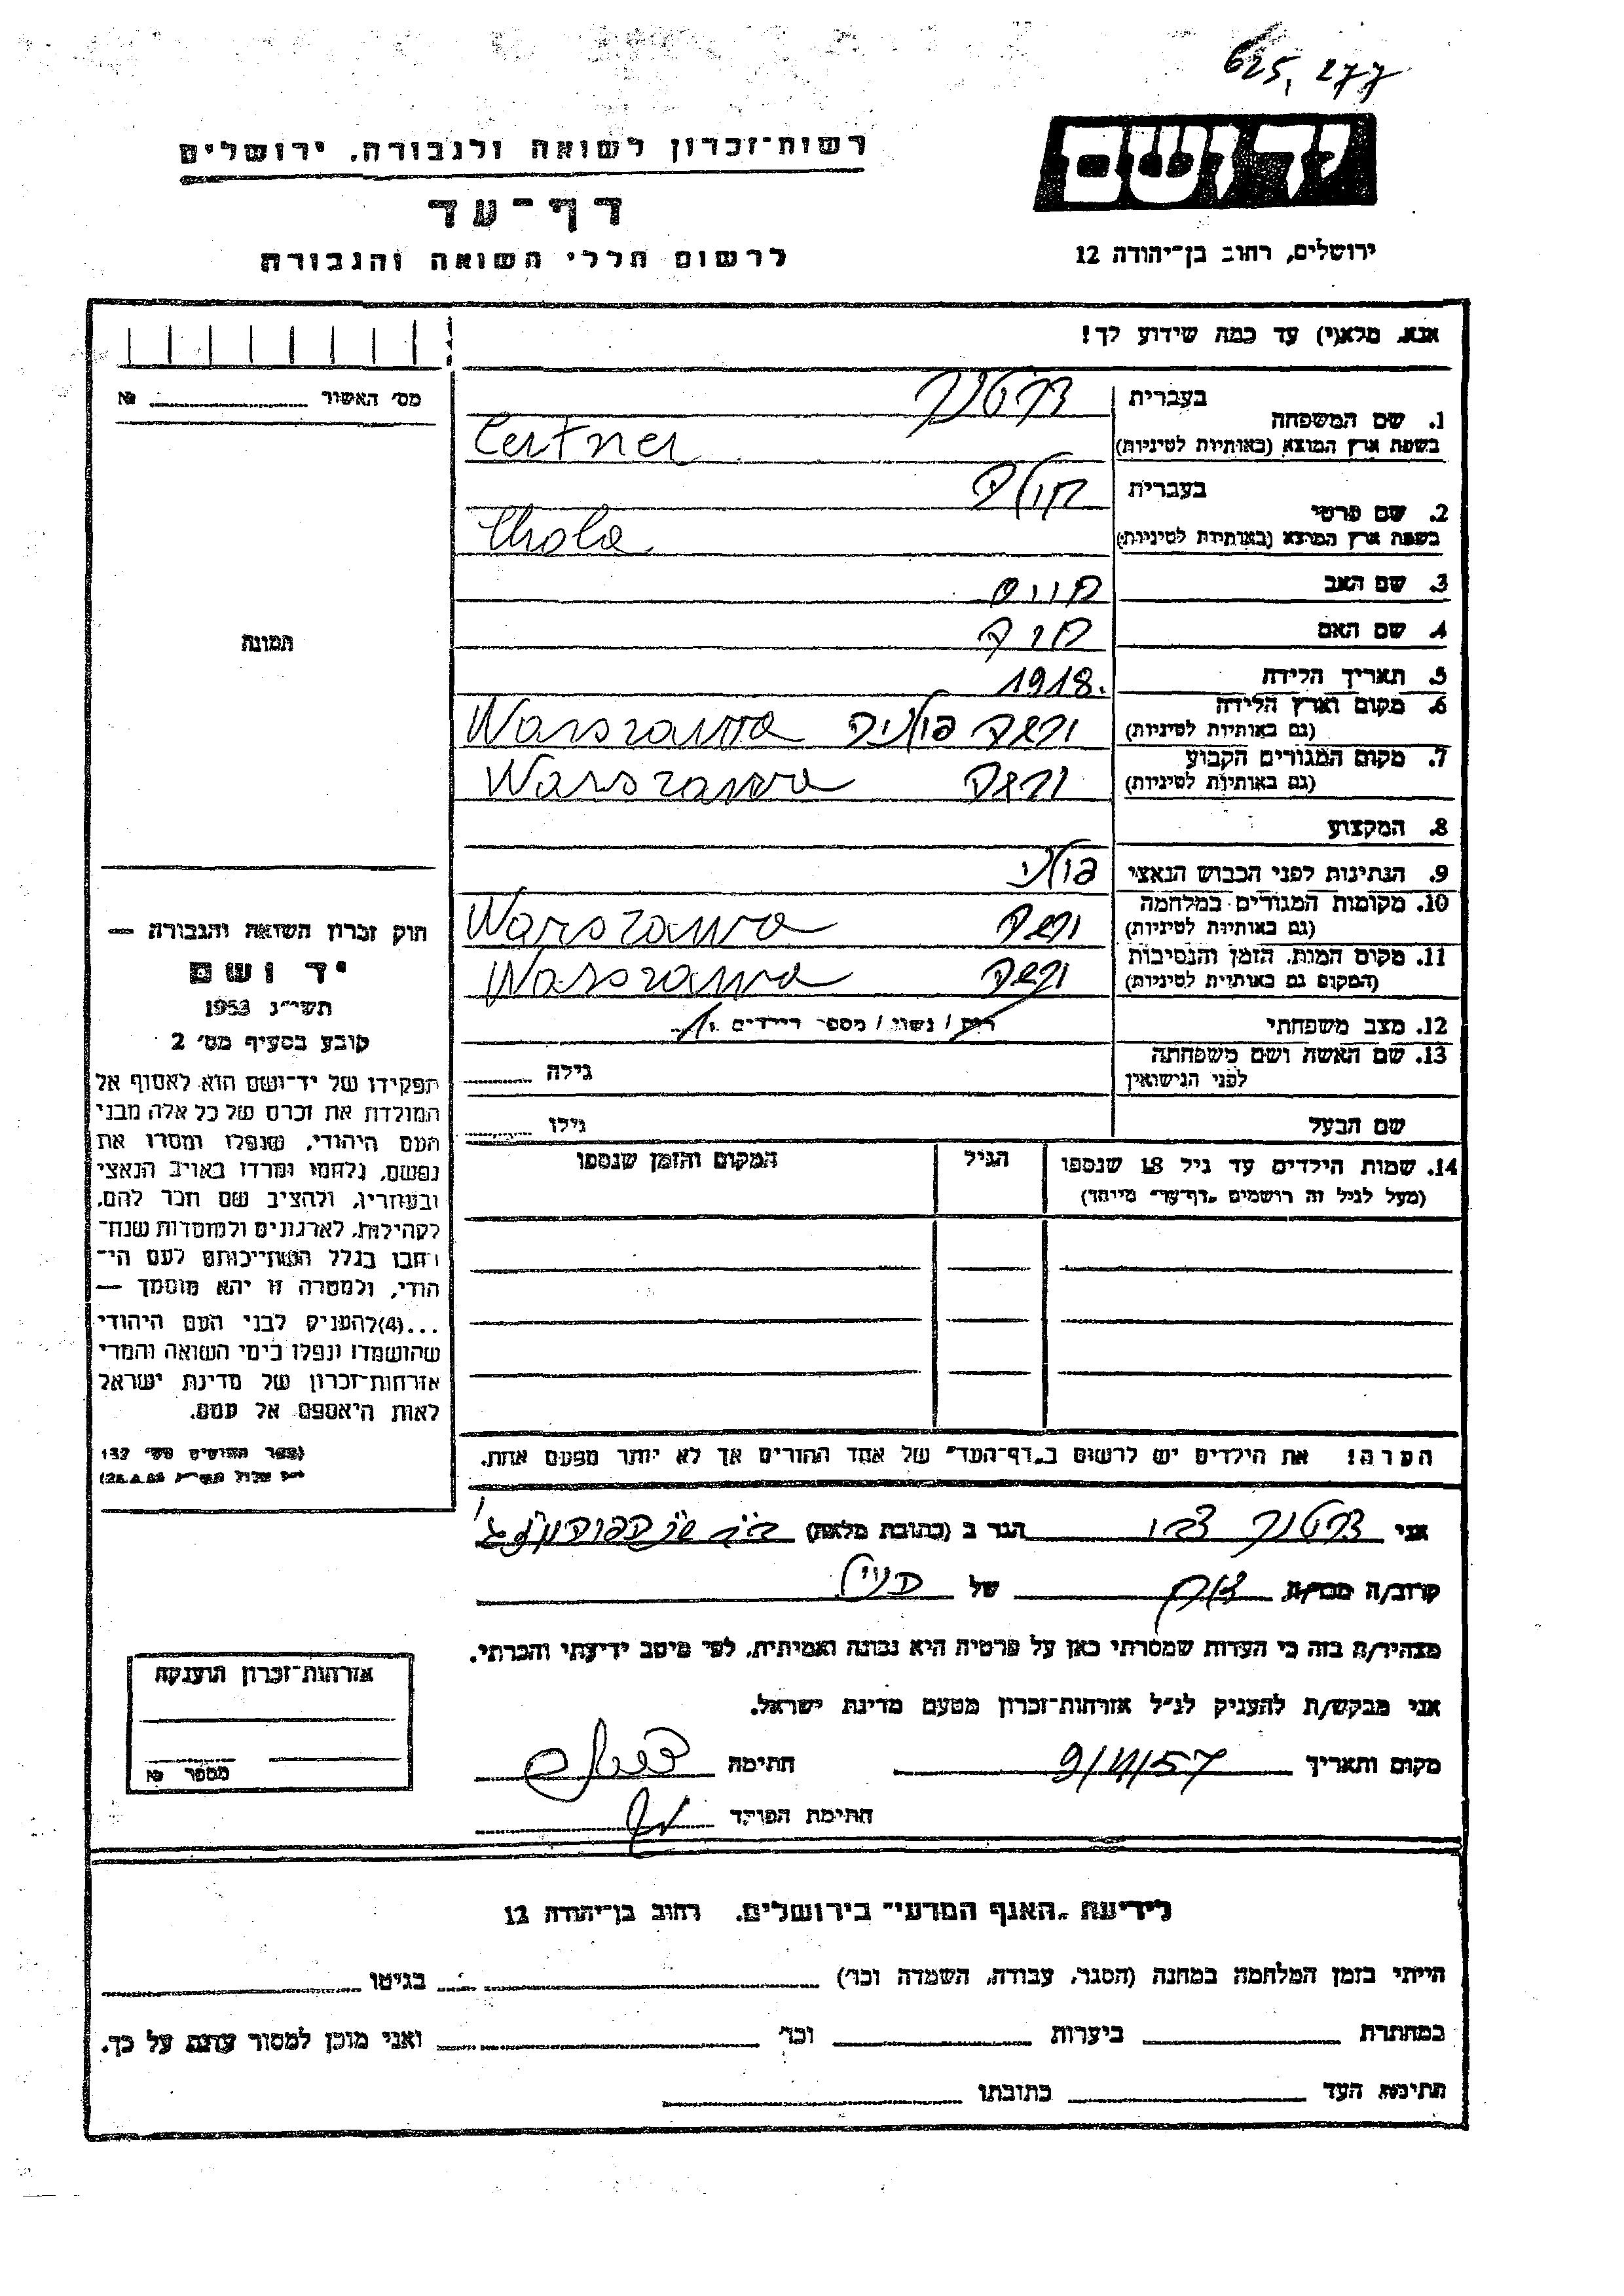 625, 277
יד ושם
רשות־זכרון לשואה ולגבורה. ירושלים
דף־עד
לרשום חללי השואה והגבורה
ירושלים, רחוב בן־יהודה 12
אנא, מלא(י) עד כמה שידוע לך!
מס׳ האשור № 
1. שם המשפחה
בעברית צרטנר
בשפת ארץ המוצא (באותיות לטיניות) Certner
2. שם פרטי
בעברית חולה
בשפת ארץ המוצא (באותיות לטיניות) Chola
3. שם האב חיים
4. שם האם
5. תאריך הלידה 1918.
6. מקום וארץ הלידה (גם באותיות לטיניות) ורשה פולניה Warszawa
7. מקום המגורים הקבוע (גם באותיות לטיניות) ורשה Warszawa
8. המקצוע
9. הנתינות לפני הכבוש הנאצי פולני
10. מקומות המגורים במלחמה (גם באותיות לטיניות) ורשה Warszawa
11. מקום המות, הזמן והנסיבות (המקום גם באותיות לטיניות) ורשה Warszawa
12. מצב משפחתי רוק / נשוי / מספר הילדים
13. שם האשה ושם משפחתה לפני הנישואין גילה
שם הבעל גילו
14. שמות הילדים עד גיל 18 שנספו
(מעל לגיל זה רושמים „דף־עד״ מיוחד)
הגיל
המקום והזמן שנספו
הערה! את הילדים יש לרשום ב„דף־העד״ של אחד ההורים אך לא יותר מפעם אחת.
תמונה
חוק זכרון השואה והגבורה —
יד ושם
תשי״ג 1953
קובע בסעיף מס׳ 2
תפקידו של יד־ושם הוא לאסוף אל
המולדת את זכרם של כל אלה מבני
העם היהודי, שנפלו ומסרו את
נפשם, נלחמו ומרדו באויב הנאצי
ובעוזריו, ולהציב שם וזכר להם,
לקהילות, לארגונים ולמוסדות שנח־
רבו בגלל השתייכותם לעם היה־
הודי, ולמטרה זו יהא מוסמך —
...(4)להעניק לבני העם היהודי
שהושמדו ונפלו בימי השואה והמרי
אזרחות־זכרון של מדינת ישראל
לאות היאספם אל עמם.
(ספר החוקים מס׳ 132
אני צרטנר צבי הגר ב (כתובת מלאה)
קרוב/ה מכר/ה של
מצהיר/ה בזה כי העדות שמסרתי כאן על פרטיה היא נכונה ואמיתית, לפי מיטב ידיעתי והכרתי.
אני מבקש/ת להעניק לנ״ל אזרחות־זכרון מטעם מדינת ישראל.
מקום ותאריך 9/4/57 חתימה
חתימת הפוקד
אזרחות־זכרון הוענקה
מספר №
לידיעת „האגף המדעי״ בירושלים. רחוב בן־יהודה 12
הייתי בזמן המלחמה במחנה (הסגר, עבודה, השמדה וכו׳) בגיטו
במחתרת ביערות וכו׳ ואני מוכן למסור עדות על כך.
חתימת העד כתובתו